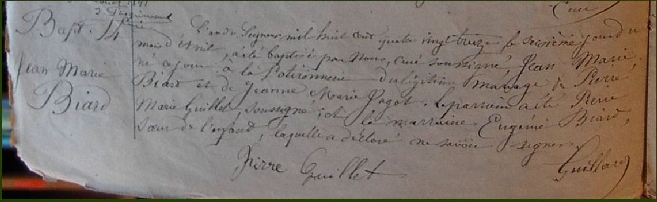 Curé
Bapt. 14
Jean Marie
Biard
L'an du Seigneur, mil huit cent quatre vingt treize le seizième jour du
mois d'avril, a été baptisé par Nous, Curé soussigné, Jean Marie
né à jour à la Poitevinière du légitime mariage de Pierre
Biard et de Jeanne Marie Pagot. Le parrain a été Pierre
Marie Guillet, soussigné et la marraine Eugénie Biard,
sœur de l'enfant, laquelle a déclaré ne savoir signer.
Pierre Guillet